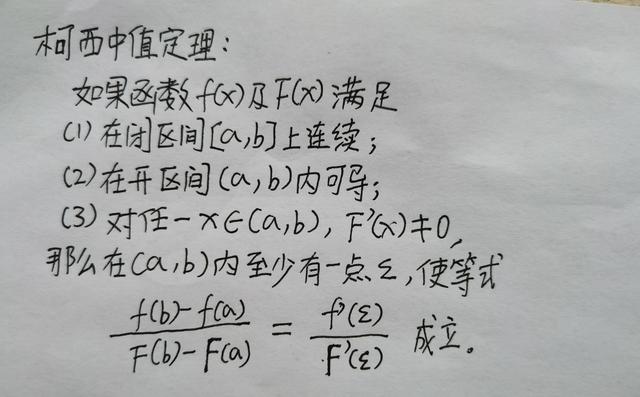 柯西中值定理:
如果函数f(x)及F(x)满足
(1)在闭区间[a,b]上连续;
(2)在开区间(a,b)内可导;
(3)对任一x∈(a,b),F'(x)≠0,
那么在(a,b)内至少有一点ε,使等式
f(b)-f(a) / F(b)-F(a) = f'(ε) / F'(ε) 成立。